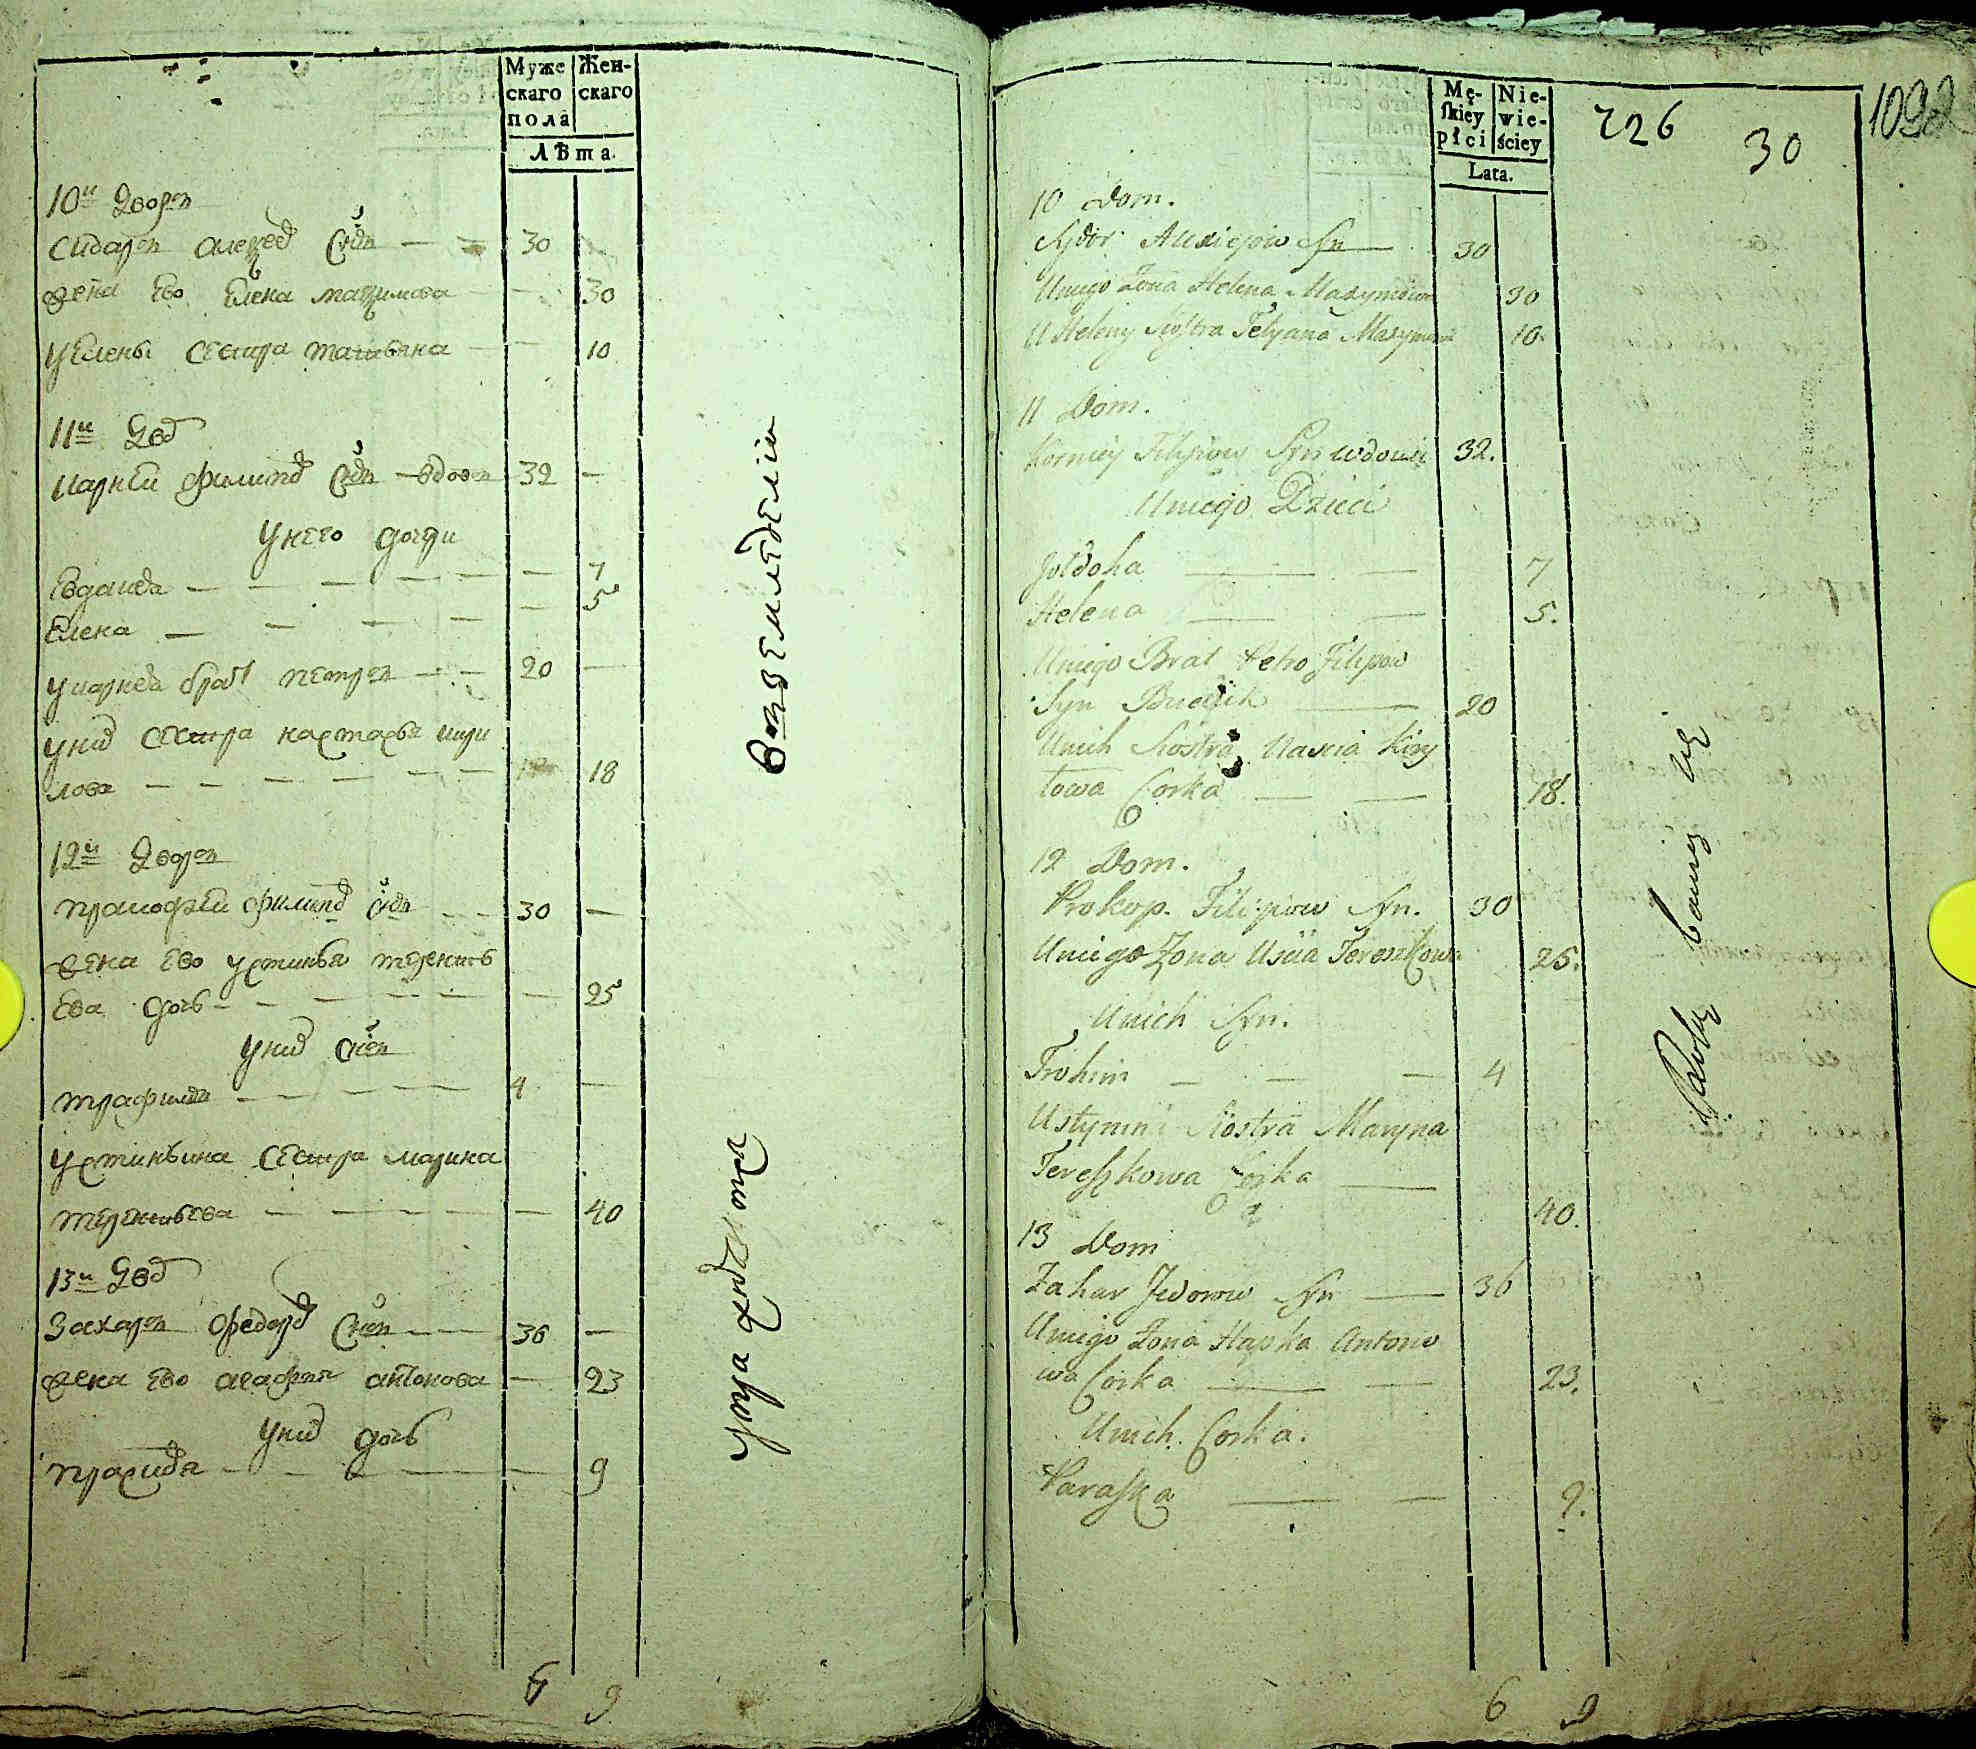 Муже Жен-
скаго скаго
пола
лѣта.
10й дворъ
Сидаръ алеѯеѣ сйнъ 30
жена ево Елена маѯимова 30
у Елены сестра татьяна 10
11й двоⷬ
карнѣй филипоⷡ сйнъ вдовъ 32
у него дочери
Евдакѣя 7
Елена 5
у карнея братъ петръ 20
у ниⷯ сестра настасья кири
лова 18
12й дворъ
пракофѣй филипоⷡ сйнъ 30
жена ево устинья терентъ
ева дочь 25
у ниⷯ сйнъ
трафимъ 4
устиньина сестра марина
терентьева 40
13й двоⷬ
захаръ федороⷡ сйнъ 36
жена ево агафия антонова 23
у ниⷯ дочь
праскѣя 9
6 9
Mę- Nie-
skiey wie-
płci ściey
Lata.
726 30
10 Dom.
Sydor Alexiejow Syn 30
U niego Zona Helena Maxymowa 30
U Heleny Siostra Tetyana Maxymowa 10.
11 Dom.
Korniey Filipow Syn wdowiec 32.
U niego Dzieci
Jołdoha 7
Helena 5.
U niego Brat Petro Filipow
Syn 20
U nich Siostra Naścia Kiry
łowa Corka 18.
12 Dom.
Prokop. Filipow Syn. 30
U niego Zona Uscia Tereszkowa 25.
U nich Syn.
Trohim 4
Ustymni Siostra Maryna
Tereszkowa Corka
40.
13 Dom
Zahar Fedorow Syn 36
U niego Zona Hapka Antono
wa Corka 23.
U nich Corka.
Paraska 9.
6 9